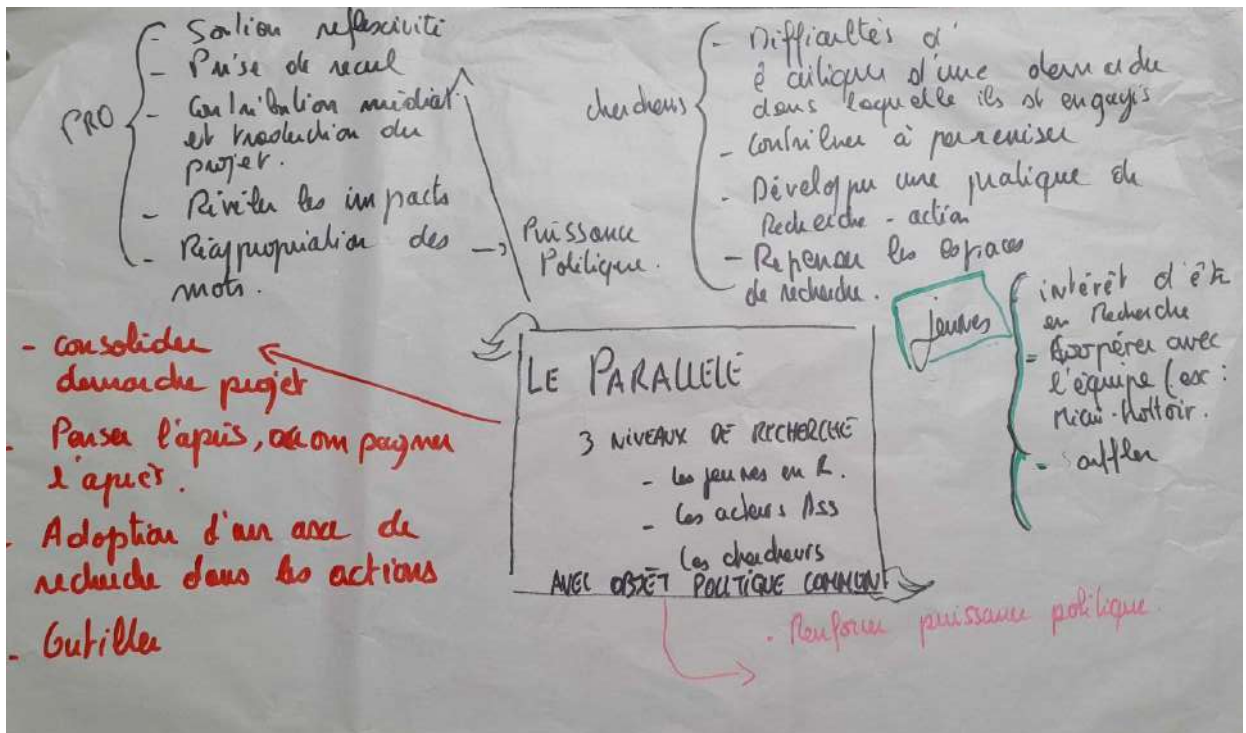 PRO
- Soution reflexivité
- Prise de recul
- Contribution médiat°
et traduction du
projet.
- Révéler les impacts
- Réappropriation des
mots.
→ Puissance
Politique.
chercheurs
- Difficultés d'
ê critique d'une demarche
dans laquelle ils st engagés
- Contribuer à perenniser
- Développer une pratique de
Recherche - action
- Repenser les espaces
de recherche.
jeunes
intérêt d'être
en Recherche
- coopérer avec
l'équipe (ex:
- Souffler
LE PARALLELE
3 NIVEAUX DE RECHERCHE
- les jeunes en R.
- les acteurs Ass
les chercheurs
AVEC OBJET POLITIQUE COMMUN
- consolider
demarche projet
- Penser l'après, accompagner
l'après.
- Adoption d'un axe de
recherche dans les actions
- Outiller
- Renforcer puissance politique.